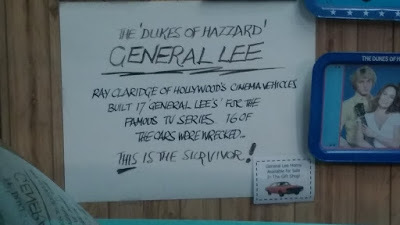 THE 'DUKES OF HAZZARD'
GENERAL LEE
RAY CLARIDGE OF HOLLYWOOD'S CINEMA VEHICLES
BUILT 17 GENERAL LEE'S' FOR THE
FAMOUS TV SERIES. 16 OF
THE CARS WERE WRECKED..
THIS IS THE SURVIVOR!
General Lee Memo
Available For Sale
In The Gift Shop!
THE DUKES OF HA